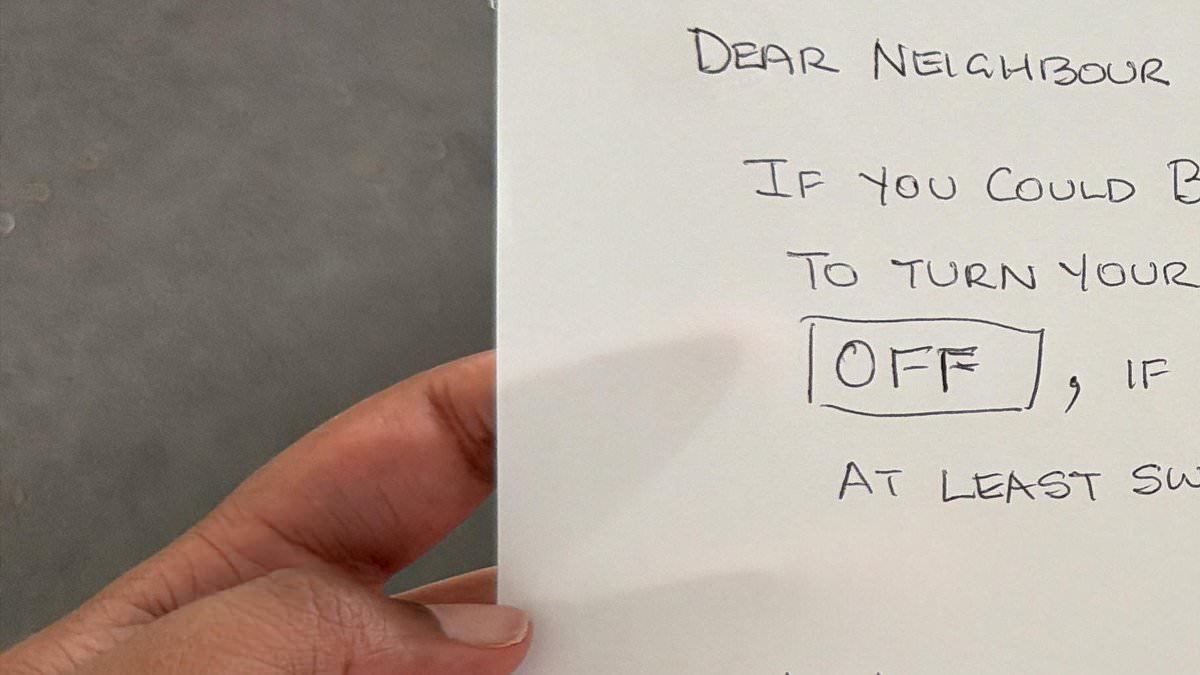 DEAR NEIGHBOUR
IF YOU COULD
TO TURN YOUR
OFF, IF
AT LEAST